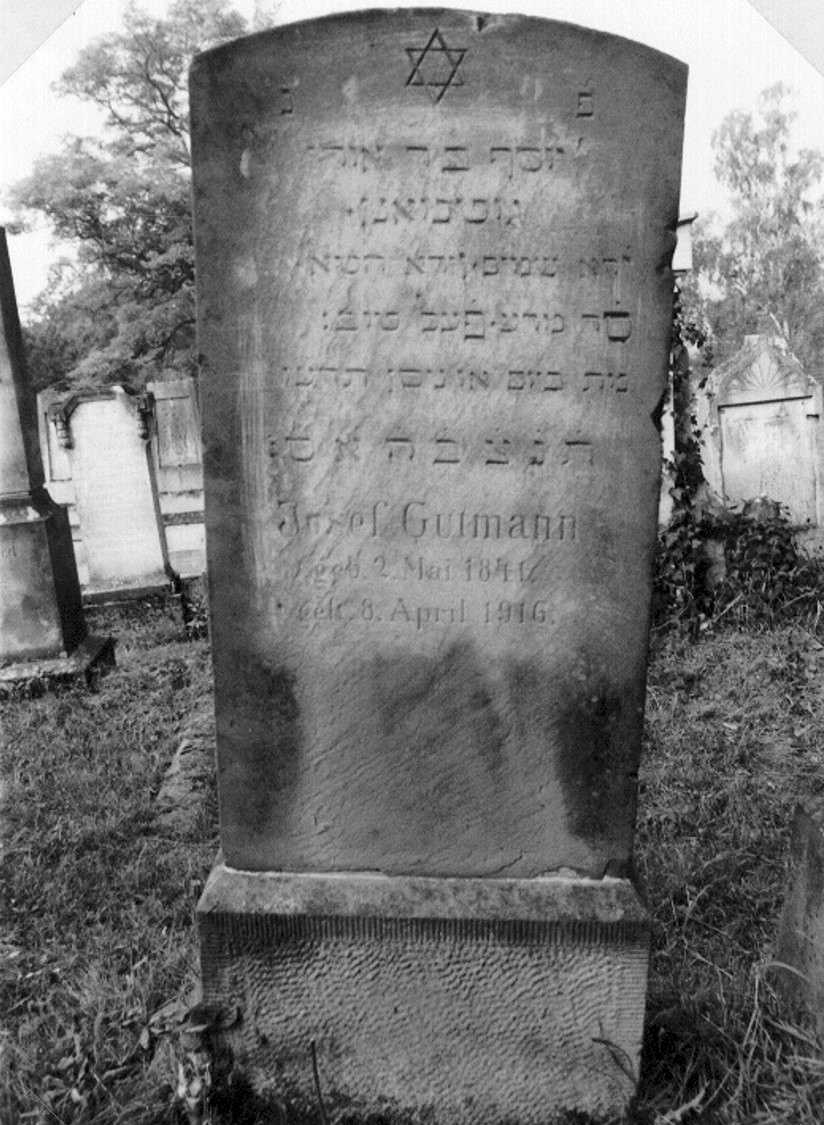 פ נ
יוסף בר אורי
גוטמאנן.
ירא שמים ירא חטא
סר מרע פעל טוב:
מת ביום או ניסן תרעו
ת נ צ ב ה א ס
Josef Gutmann
geb. 2. Mai 1841.
gest. 8. April 1916.